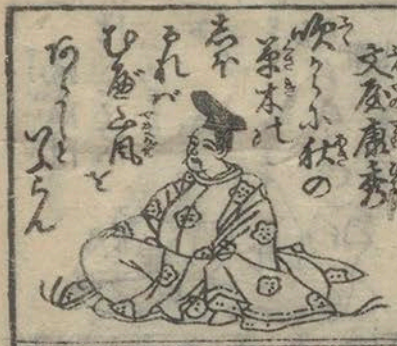 文屋康秀
吹からに秋の
草木の
しほ
るれば
むべ山風を
あらしと
いふらん